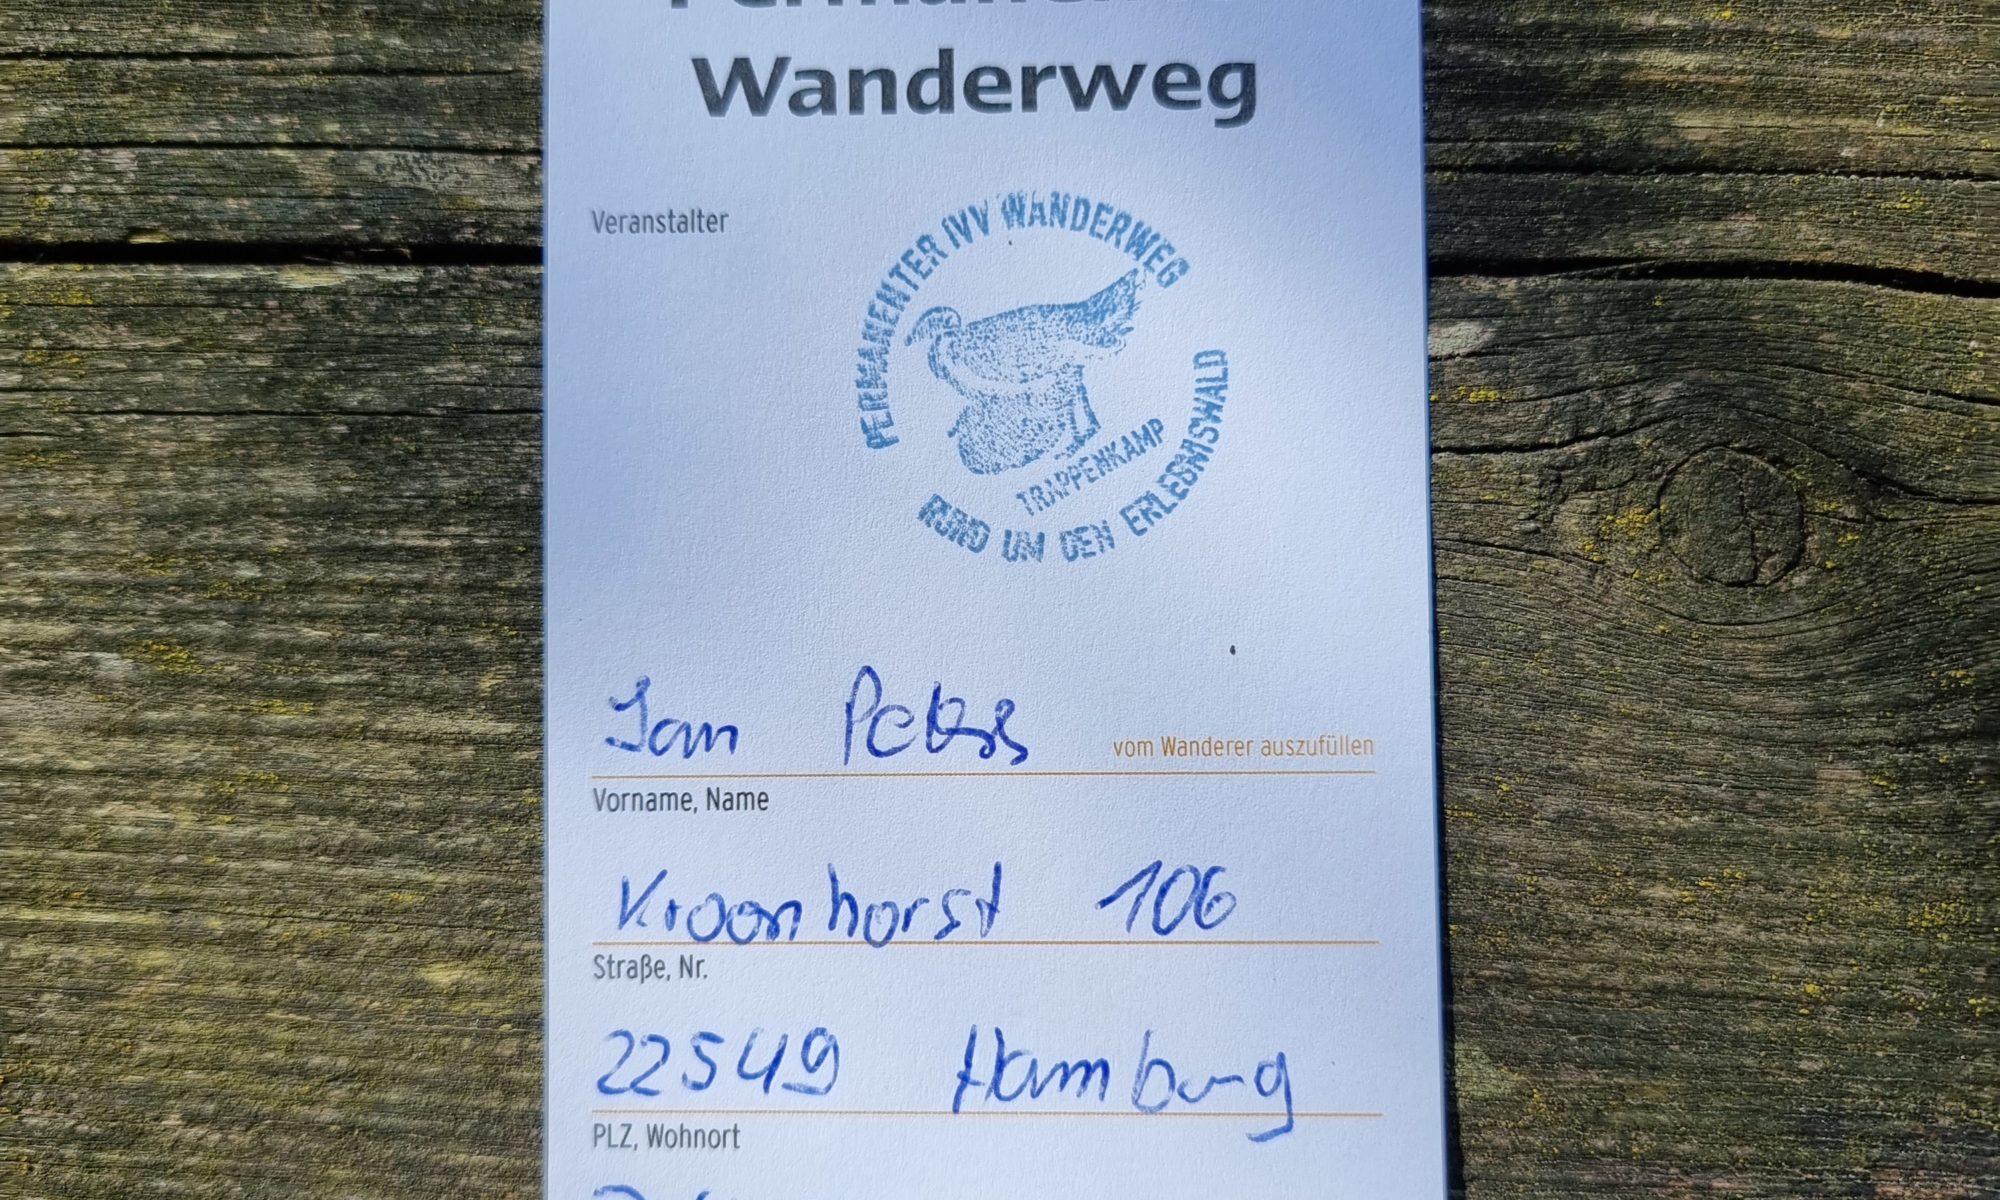 Wanderweg
Veranstalter
PERMANENTER IVV WANDERWEG
TRAPPENKAMP
RUND UM DEN ERLEBNISWALD
Jan Peters
vom Wanderer auszufüllen
Vorname, Name
Kroonhorst 106
Straße, Nr.
22549 Hamburg
PLZ, Wohnort